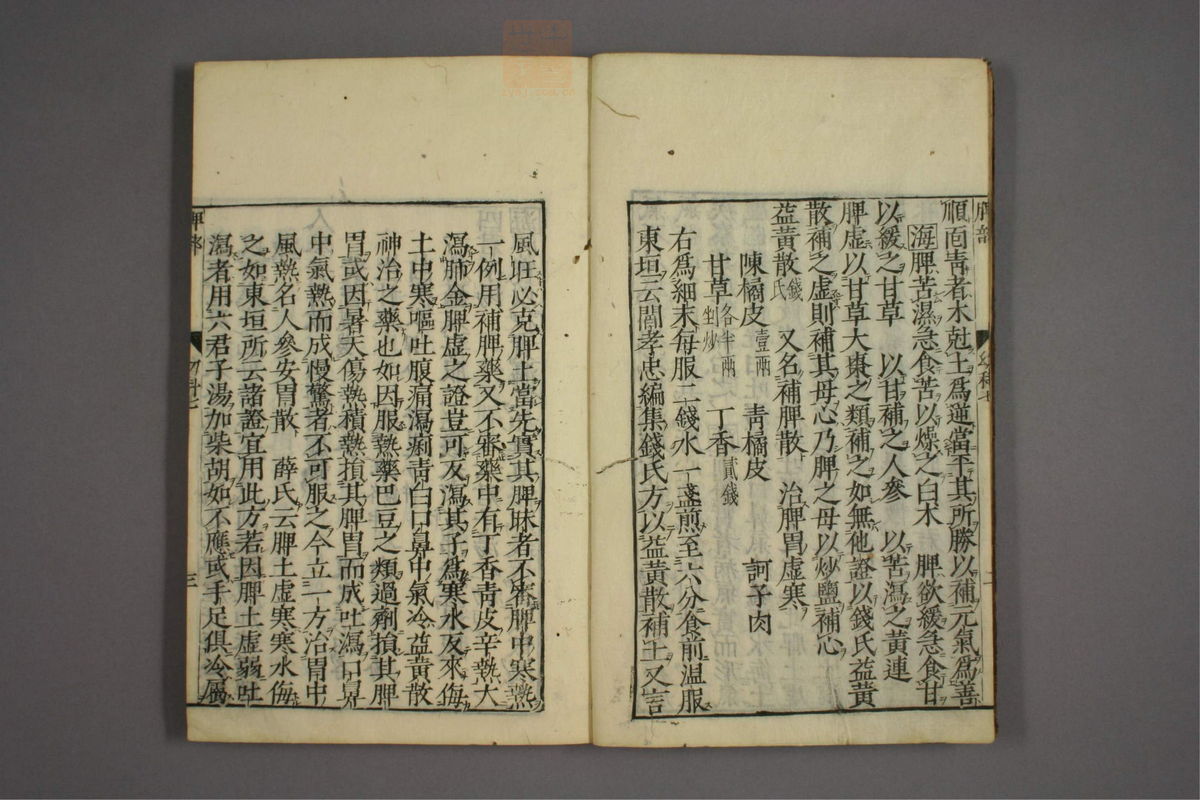 順面靑者木尅土爲逆當至其所勝以補元氣爲善
海脾苦濕急食苦以燥之白木 脾欲緩急食甘
以緩之甘草 以甘補之人參 以苦瀉之黃連
脾虛以甘草大棗之類補之如無他證以錢氏益黃
散補之虛則補其母心乃脾之母以炒鹽補心
益黃散錢氏 又名補脾散 治脾胃虛寒
陳橘皮壹兩 靑橘皮 訶子肉
甘草各半兩剉炒 丁香貳錢
右爲細末每服二錢水一盞煎至六分食前溫服
東垣云閻孝忠編集錢氏方以益黃散補土又言
風旺必克脾土當先實其脾昧者不審脾中寒熱
一例用補脾藥又不審藥中有丁香靑皮辛熱大
瀉肺金脾虛之證豈可反瀉其子爲寒水反來侮
土中寒嘔吐腹痛瀉痢靑白口鼻中氣冷益黃散
神治之藥也如因服熱藥巴豆之類過劑損其脾
胃或因暑天傷熱積熱損其脾胃而成吐瀉口鼻
中氣熱而成慢驚者不可服之今立一方治胃中
風熱名人參安胃散 薛氏云脾土虛寒寒水侮
之如東垣所云諸證宜用此方若因脾土虛弱吐
瀉者用六君子湯加柴胡如不應或手足俱冷屬
脾部
三